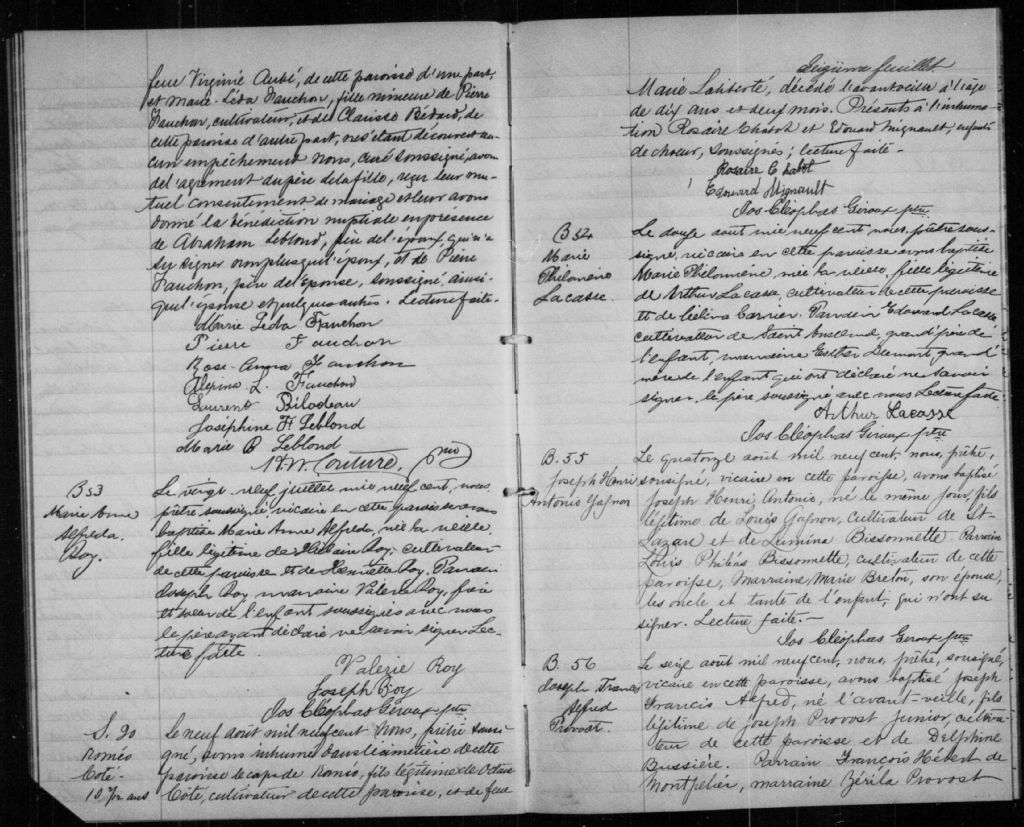 feue Virginie Aubé, de cette paroisse d'une part,
et Marie-Léda Fauchon, fille mineure de Pierre
Fauchon, cultivateur, et de Clarisse Bédard, de
cette paroisse d'autre part, ne s'étant découvert au-
cun empêchement Nous, curé soussigné, avons
de l'agrément du père de la fille, reçu leur mu-
tuel consentement de mariage et leur avons
donné la bénédiction nuptiale en présence
de Abraham Leblond, père de l'époux, qui n'a
su signer non plus que l'époux, et de Pierre
Fauchon, père de l'épouse, soussigné, ainsi-
que l'épouse et quelques autres. Lecture faite-
Marie Léda Fauchon
Pierre Fauchon
Rose-Anna Fauchon
Alexina L. Fauchon
Laurent Bilodeau
Joséphine H Leblond
Marie B Leblond
Couture, Ptre
B 53
Marie Anne
Alfreda.
Roy.
Le vingt neuf juillet mil neuf cent, nous
prêtre soussigné, vicaire en cette paroisse avons
baptisé Marie Anne Alfreda, née la veille
fille légitime de Hilaire Roy, cultivateur
de cette paroisse et de Henriette Roy. Parrain
Joseph Roy marraine Valérie Roy, frère
et soeur de l'enfant soussignés avec nous
le père ayant déclaré ne savoir signer Lec-
ture faite.
Valerie Roy
Joseph Roy
Jos Cléophas Giroux ptre
S. 20
Roméo
Coté.
10 7/12 ans
Le neuf août mil neuf cent Nous, prêtre soussi-
gné, avons inhumé dans le cimetière de cette
paroisse le corps de Roméo, fils légitime de Octave
Côté, cultivateur de cette paroisse, et de feue
Sizième feuillet
Marie Laliberté, décédé l'avant veille à l'âge
de dix ans et neuf mois. Présents à l'inhuma-
tion Rosaire Chabot et Edouard Mignault, enfants
de choeur, soussignés; lecture faite-
Rosaire Chabot
Edouard Mignault
Jos Cléophas Giroux ptre
B 54
Marie
Philomène
Lacasse.
Le douze août mil neuf cent nous, prêtre sous-
signé, vicaire en cette paroisse avons baptisé
Marie Philomène, née la veille, fille légitime
de Arthur Lacasse, cultivateur de cette paroisse
et de Célina Carrier. Parrain Edouard Lacasse
cultivateur de Saint Anselme, grand père de
l'enfant, marraine Esther Dumont, grand'
mère de l'enfant qui ont déclaré ne savoir
signer, le père soussigné avec nous Lecture faite
Arthur Lacasse
Jos Cléophas Giroux ptre
B. 55
Joseph Henri
Antonio Gagnon
Le quatorze août mil neuf cent, nous, prêtre,
soussigné, vicaire en cette paroisse, avons baptisé
Joseph Henri Antonio, né le même jour, fils
légitime de Louis Gagnon, cultivateur de St-
Lazare et de Lumina Bissonnette. Parrain
Louis Philéas Bissonnette, cultivateur de cette
paroisse, Marraine Marie Breton, son épouse,
les oncle et tante de l'enfant, qui n'ont su
signer. Lecture faite.-
Jos Cléophas Giroux ptre
B. 56
Joseph Francis
Alfred
Provost.
Le seize août mil neuf cent, nous, prêtre, soussigné,
vicaire en cette paroisse, avons baptisé Joseph
Francis Alfred, né l'avant-veille, fils
légitime de Joseph Provost Junior, cultiva-
teur de cette paroisse et de Delphine
Bussière. Parrain François Hébert de
Montpelier, marraine Zérila Provost